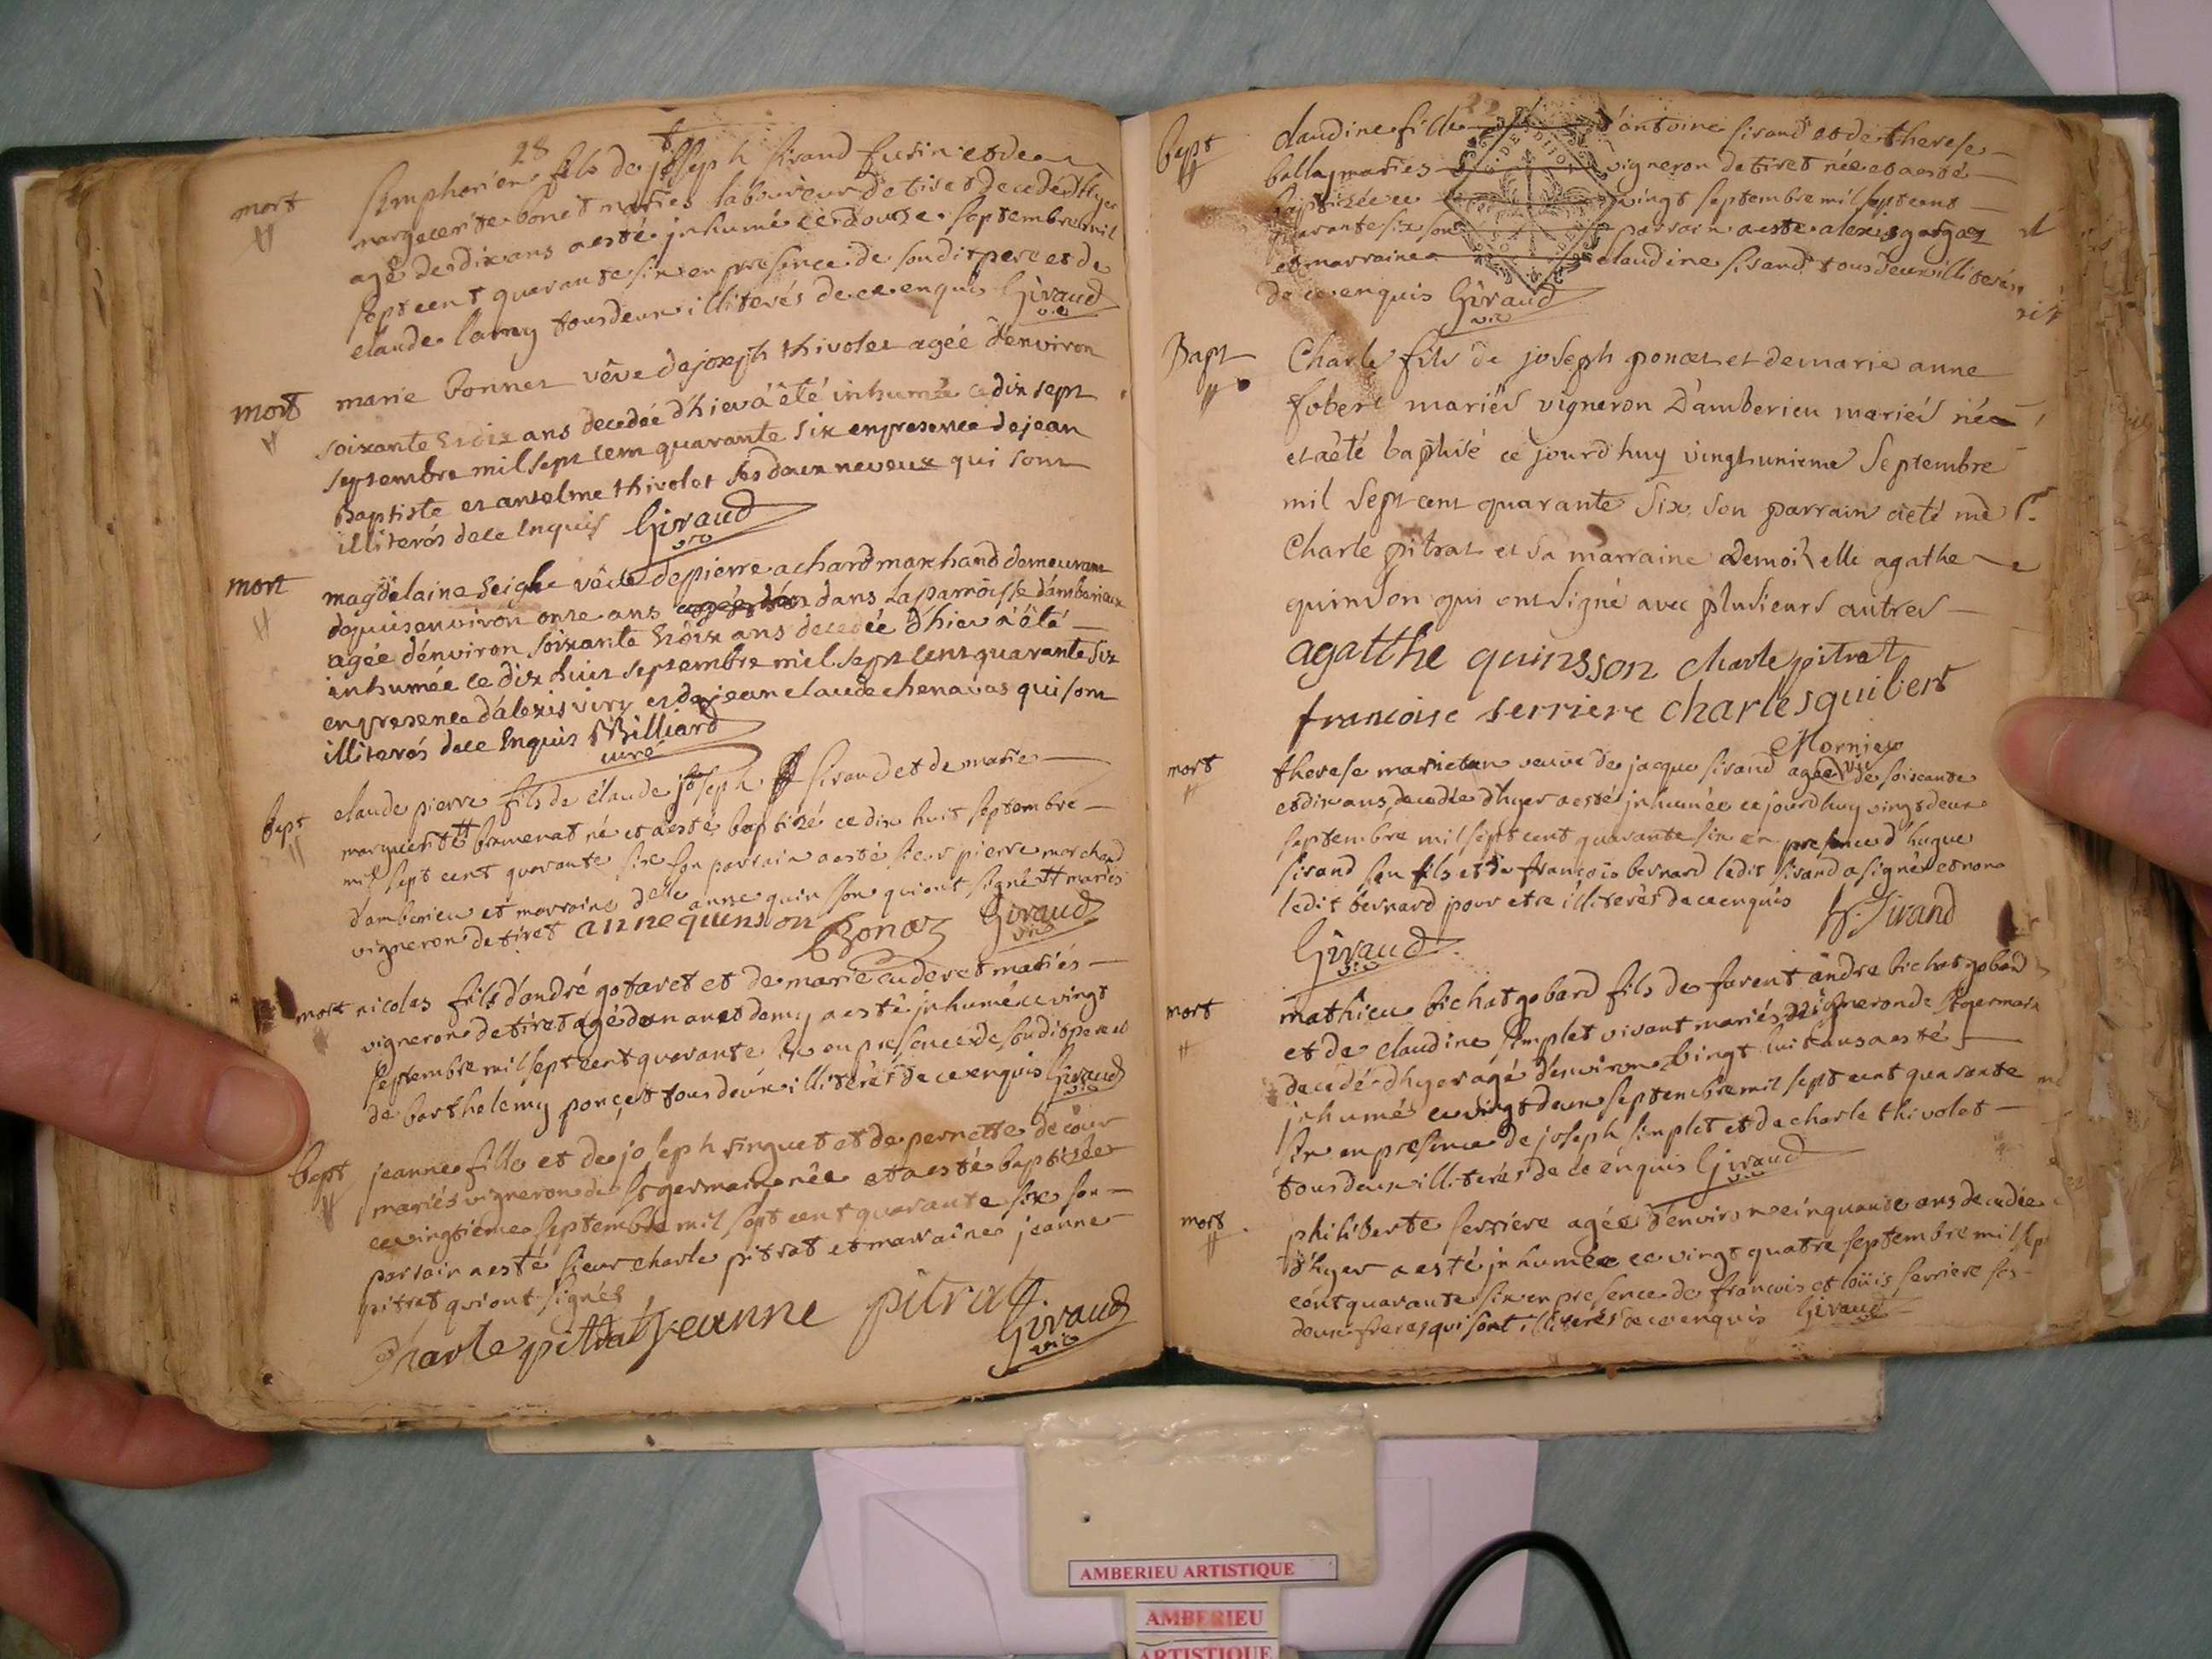 28
mort
simphorien fils de joseph sirand furin et de
marguerite bonet mariés laboureur de tiret decedé d'hyer
agé de dix ans a esté jnhumé ce douze septembre mil
sept cent quarante six en presence de son dit pere et de
claude lamy tous deux illiterés de ce enquis Giraud
vic
mort
marie bonnet vêve de joseph thivolet agée d'environ
soixante et dix ans decedée d'hier á êté inhumée ce dix sept
septembre mil sept cent quarante six en presence de jean
Baptiste et anselme thivolet ses deux neveux qui sont
illiterés de ce Enquis Giraud
vic
mort
magdelaine vêve de pierre achard marchand demeurant
depuis environ onze ans dans la parroisse d'amberieux
agée d'environ soixante et dix ans decedée d'hier á êté
inhumée ce dix huit septembre mil sept cent quarante six
en presence d'alexis viry et de jean claude chenavas qui sont
illiterés de ce Enquis Billiard
curé
bapt
claude pierre fils de claude joseph sirand et de marie
marguerite bramerat né et a esté baptizé ce dix huit septembre
mil sept cent quarante six son parrain a esté sieur pierre marchand
d'amberieu et marraine delle anne quinson qui ont signé # mariés
vigneron de tiret anne quinson Bonaz Giraud
vic
mort
nicolas fils d'andré gotaret et de marie cuderet mariés
vigneron de tiret agé d'un an et demy a esté jnhumé ce vingt
septembre mil sept cent quarante six en presence de son dit pere et
de barthelemy ponçet tous deux illiterés de ce enquis Giraud
vic
bapt
jeanne fille et de joseph singuet et de pernette decour
mariés vigneron de st germain née et a esté baptisée
ce vingtieme septembre mil sept cent quarante six son
parrain a esté sieur charle pitrat et marraine jeanne
pitrat qui ont signés
Charle pitrat Jeanne pitrat Giraud
vic
22
bapt
claudine fille d'antoine sirand et de therese
ballay mariés vigneron de tiret née et a esté
baptizée ce vingt septembre mil sept cent
quarante six son parrain a este alexis gargaz
et marraine claudine sirand tous deux illiterés
de ce enquis Giraud
vic
Bapt
Charle fils de joseph poncet et de marie anne
fobert mariés vigneron D'amberieu mariés né
et a êté baptisé ce jourd'huy vingt unieme Septembre
mil Sept cent quarante Six, son parrain a eté me Sr
Charle pitrat et sa marraine Demoiselle agathe
quinson qui ont signé avec plusieurs autres
agatthe quinsson charle pitrat
francoise serriere charles guibert
Mornieu
vic
mort
therese marietan veuve de jacque sirand agée de soixante
et dix ans decedée d'hyer a esté jnhumée ce jourd'huy vingt deux
septembre mil sept cent quarante six en presence d'hugue
sirand son fils et de françois bernard ledit sirand a signé et non
ledit bernard pour etre illiterés de ce enquis H. Sirand
Giraud
vic
mort
mathieu bichat gobard fils de furent andre bichat gobard
et de claudine simplet vivant mariés vigneron de st germain
decedé d'hyer agé d'environ vingt huit ans a esté
jnhumés ce vingt deux septembre mil sept cent quarante
six en presence de joseph simplet et de charle thivolet
tous deux illiterés de ce enquis Giraud
vic
mort
philiberte serriere agée d'environ cinquante ans decedée
d'hyer a esté jnhumée ce vingt quatre septembre mil sept
cent quarante six en presence de francois et loüis serriere ses
deux freres qui sont illiterés de ce enquis Giraud
vic
AMBERIEU ARTISTIQUE
AMBERIEU
ARTISTIQUE